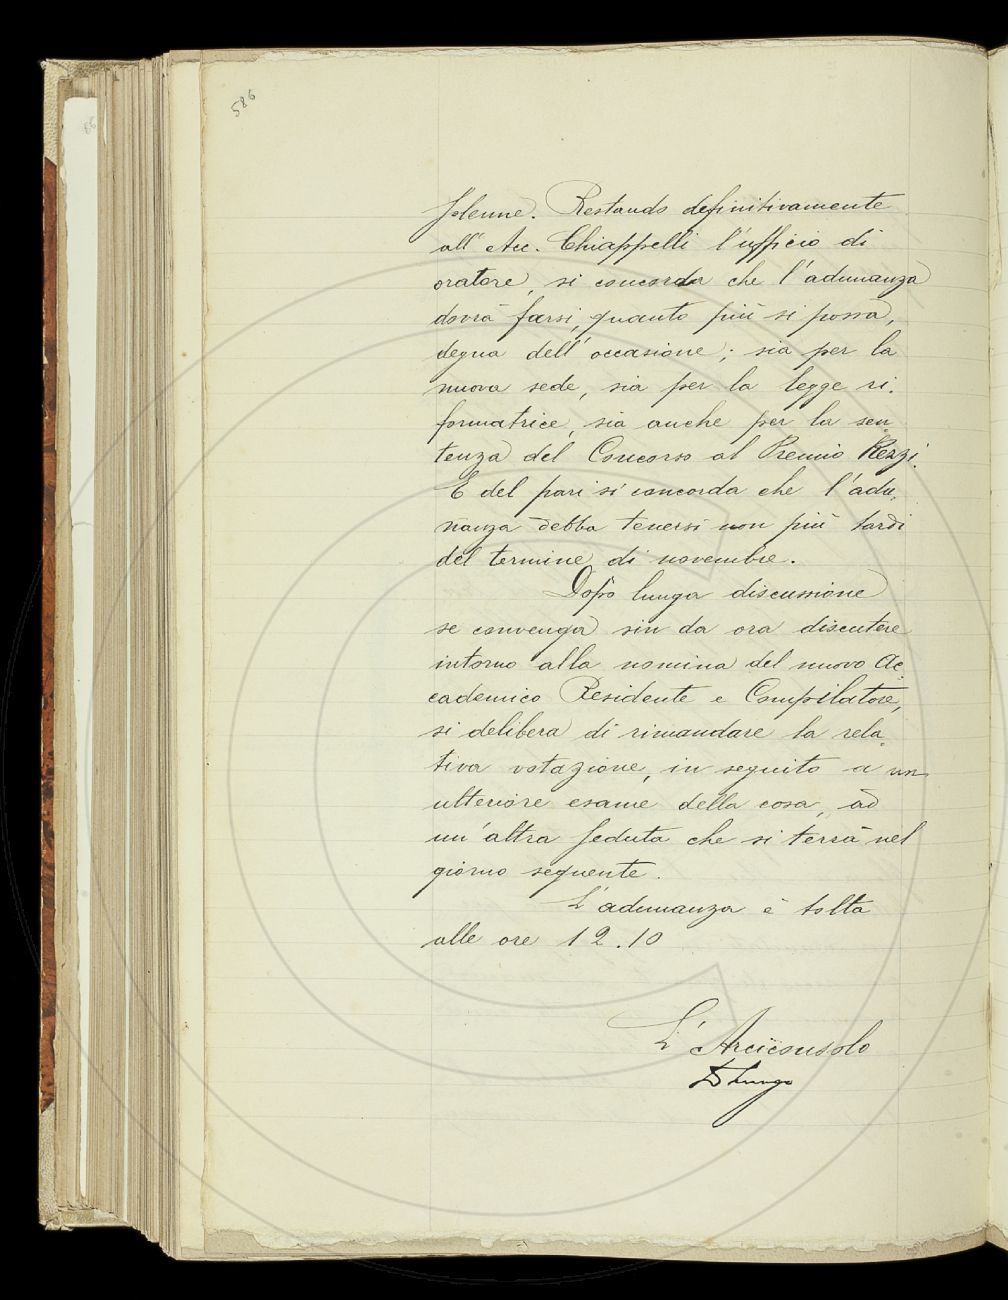 586
solenne. Restando definitivamente
all' Acc. Chiappelli l'ufficio di
oratore, si concorda che l'adunanza
dovrà farsi, quanto più si possa,
degna dell'occasione; sia per la
nuova sede, sia per la legge ri-
formatrice, sia anche per la sen-
tenza del Concorso al Premio Rezzi.
E del pari si concorda che l'adu-
nanza debba tenersi non più tardi
del termine di novembre.
Dopo lunga discussione
se convenga sin da ora discutere
intorno alla nomina del nuovo Ac-
cademico Residente e Compilatore,
si delibera di rimandare la rela-
tiva votazione, in seguito a un
ulteriore esame della cosa, ad
un'altra seduta che si terrà nel
giorno seguente.
L'adunanza è tolta
alle ore 12.10
L'Arciconsolo